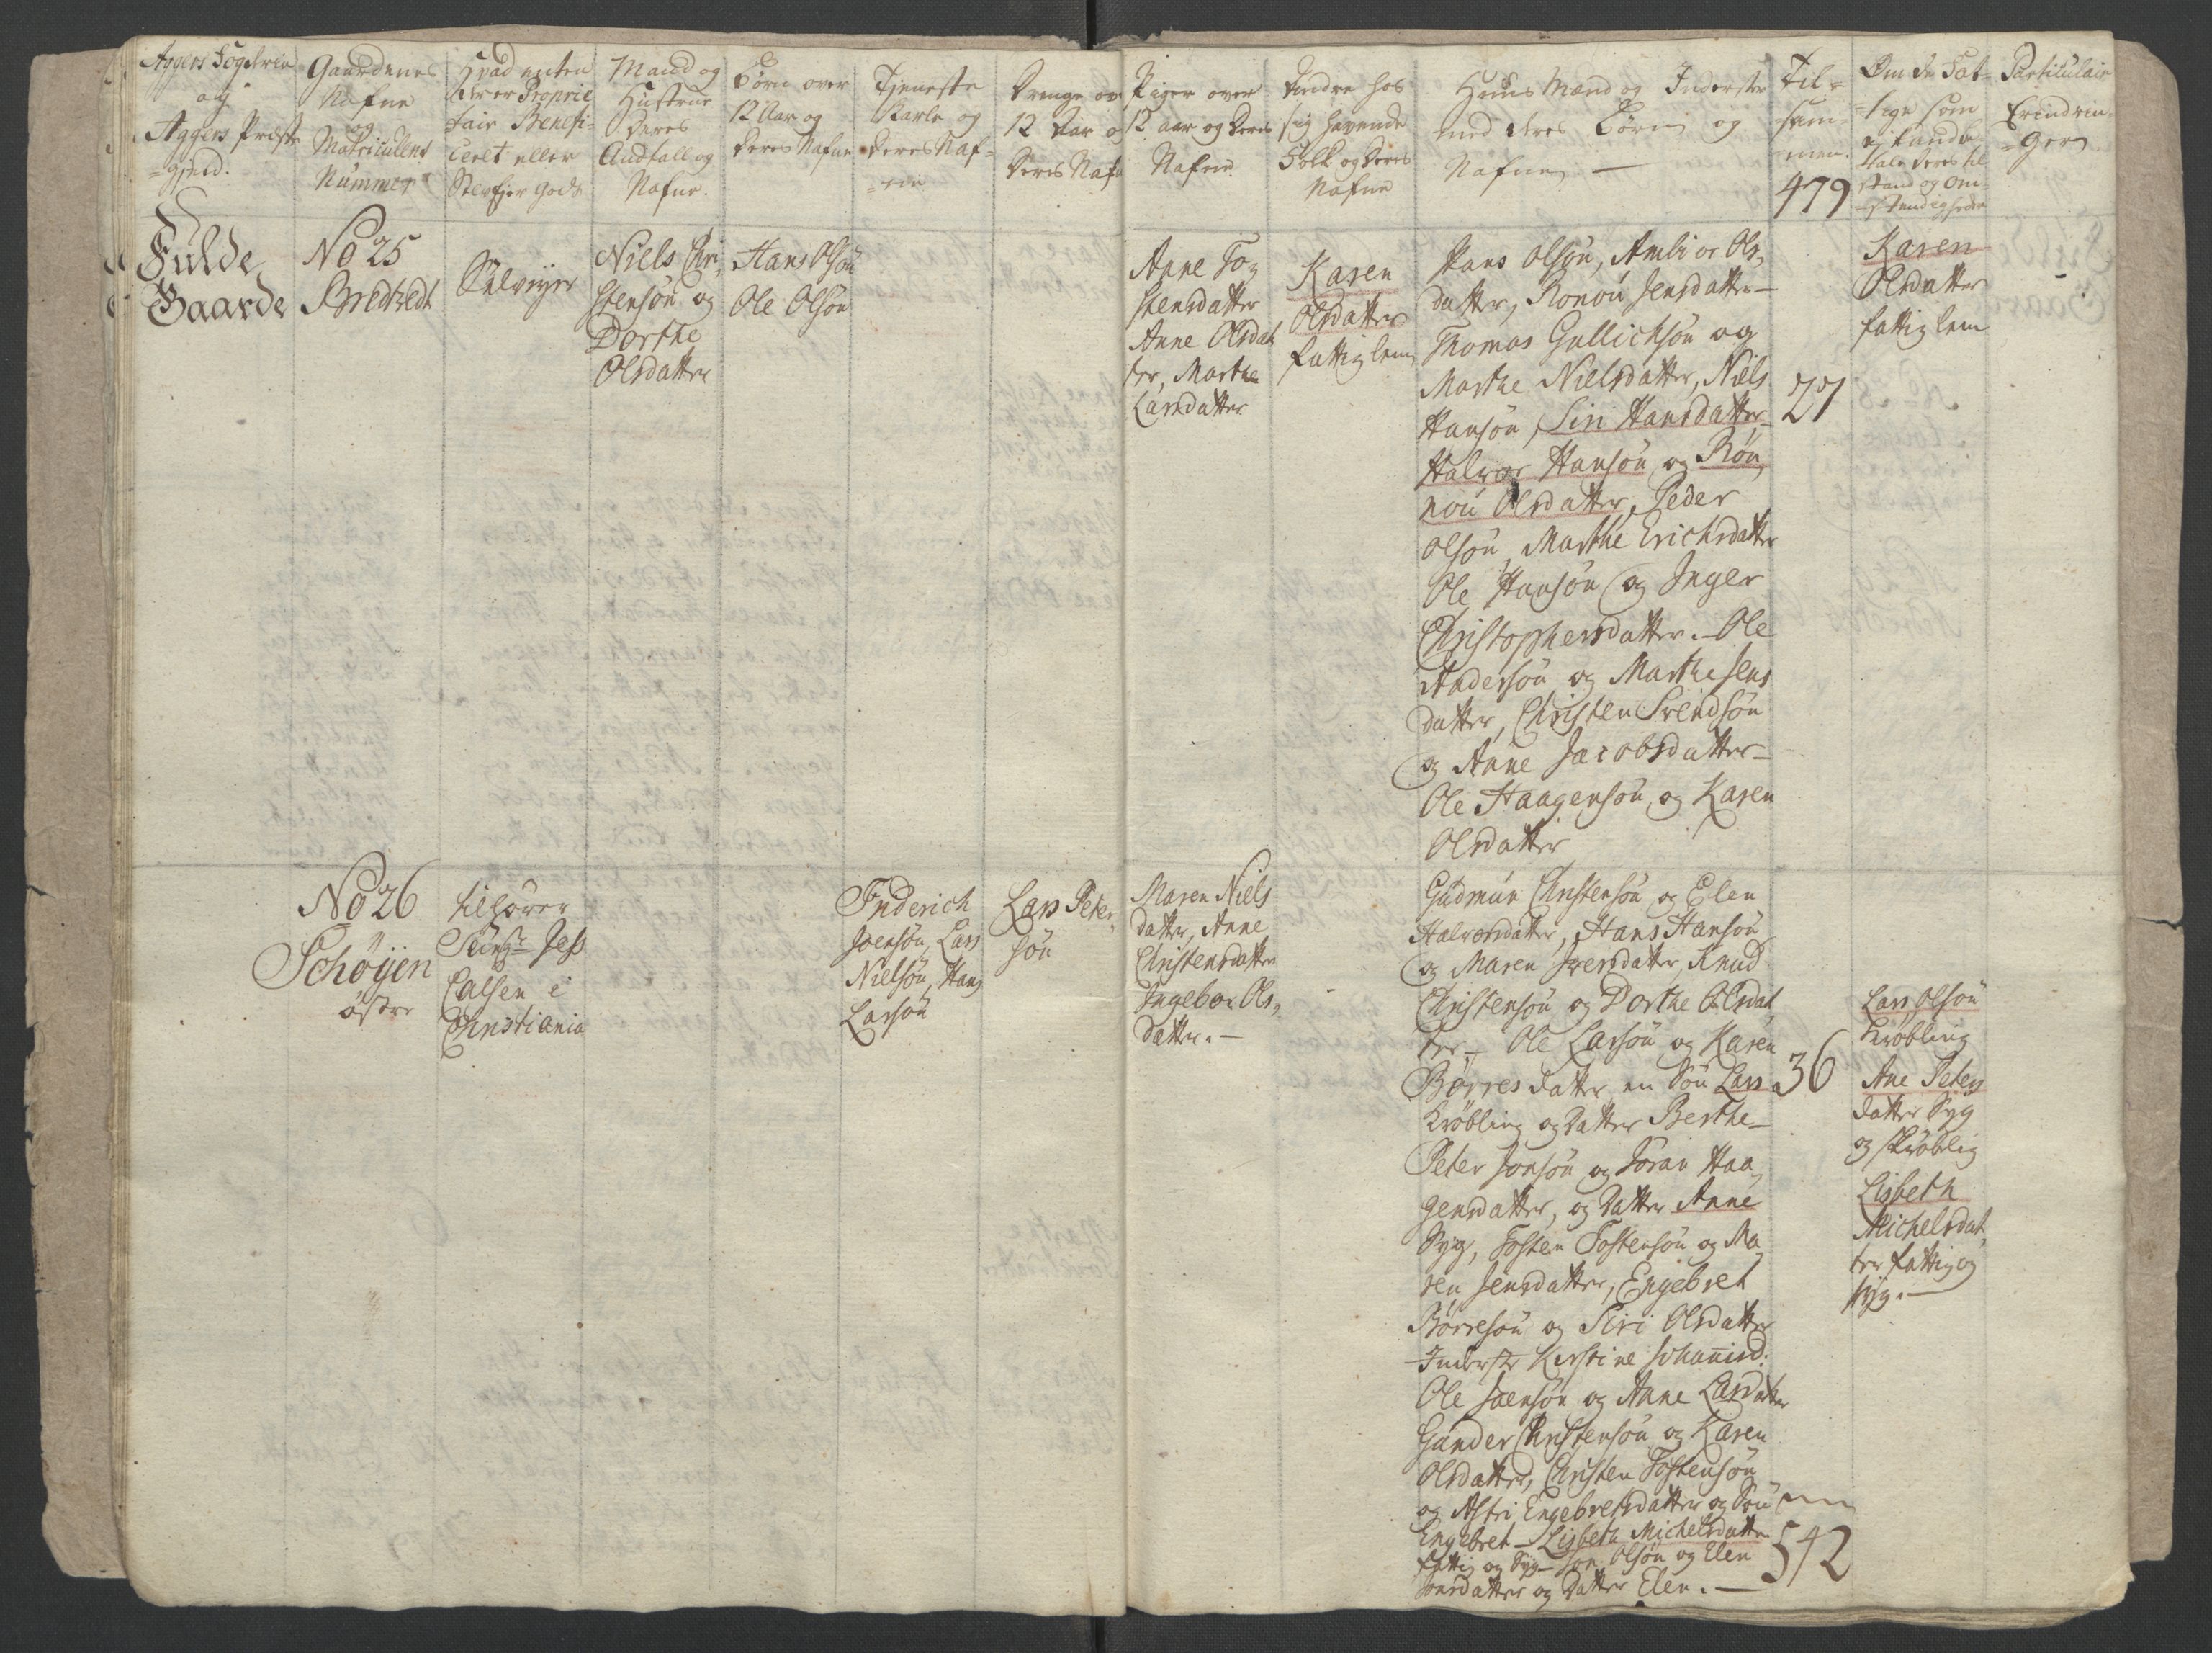 Aggers Fogderie
og
Aggers Præste
=gield.
Gaardenes
Nafne
og
Matriculens
Nummer
Hvad enten
de er Proprie
tair Benefi-
ceret eller
Selvejer Gods
Mand og
Hustrue
deres
Andtall og
Nafne.
Børn over
12 Aar og
deres Nafne
Tjeneste
Karle og
deres Naf=
=ne
Drenge ov
12 Aar o
deres Nafn
Piger over
12 aar og deres
Nafne
Andre hos
sig havende
Folk og deres
Nafne
Huus Mænd og Inderster
med deres Børn og
Nafne —
Til=
sam=
men.
479
Om de Fat=
=tige som
Stand og Om=
=stændigheder
Particulair
Erindrin=
=ger
Fulde
Gaarde
No 25
Bredtvedt
Selveyer
Niels Chri
stensøn og
Dorthe
Olsdatter
Hans Olsøn
Ole Olsøn
Anne To,
stensdatter
Anne Olsdat
ter, Marthe
Larsdatter
Karen
Olsdatter
fattig lem
Hans Olsøn, Amlior Ols,
datter, Ronou Jensdatter —
Thomas Gullichsøn og
Marthe Nielsdatter, Niels
Hansøn, Siri Hansdatter,
Halvor Hansøn, og Røn,
nou Olsdatter, Peder
Olsøn, Marthe Erichsdatter
Ole Hansøn og Inger
Christophersdatter. – Ole
Andersøn og Marthe Jens
datter, Christen Svendsøn
og Anne Jacobsdatter –
Ole Haagensøn, og Karen
Olsdatter
27
Karen
Olsdatter
fattig lem
No 26
Schøyen
østre
tilhører
Jess
Calsen i
Christiania
Friderich
Joensøn, Lars
Nielsøn, Hans
Larsøn
Lars Peter,
søn
Maren Niels
datter, Anne
Christensdatter
Ingebor Ols,
datter. —
Gudmun Christensøn og Elen
Halvorsdatter, Hans Hansøn
og Maren Iversdatter, Knud
Christensøn og Dorthe Olsdat,
ter – Ole Larsøn og Karen
Børresdatter, en Søn Lars
Krøbling og Datter Berthe –
Peter Jonsøn og Jøran Haa,
gensdatter, og Datter Anne
Syg, Tosten Tostensøn og Ma,
ren Jensdatter, Engebret
Børresøn og Siri Olsdatter
Inderste Kirstine Johannisd:
Ole Joensøn og Anne Larsdatter
Gunder Christensøn og Karen
Olsdatter, Christen Tostensøn
og Astri Engebretsdatter og Søn
Engebret – Lisbeth Michelsdatter
fattig og Syg – Jon Olsøn og Elen
Jonsdatter og Datter Elen. —
36
542
Lars Olsøn
Krøbling
Ane Peters
datter Syg
og skrøblig
Lisbeth
Michelsdat,
ter fattig og
syg. —